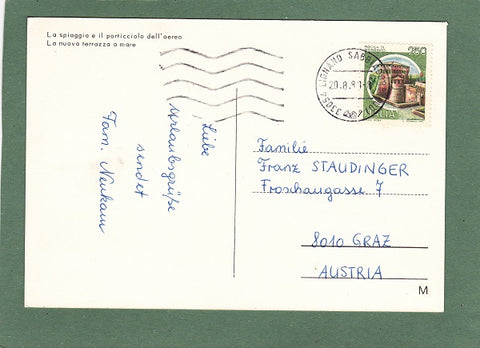 La spiaggia e il porticciolo dall'aereo
La nuova terrazza a mare
Liebe
Urlaubsgrüße
sendet
Fam. Neukam
33054 LIGNANO SABB
20.8.8
250
Familie
Franz STAUDINGER
Froschaugasse 7
8010 GRAZ
AUSTRIA
M